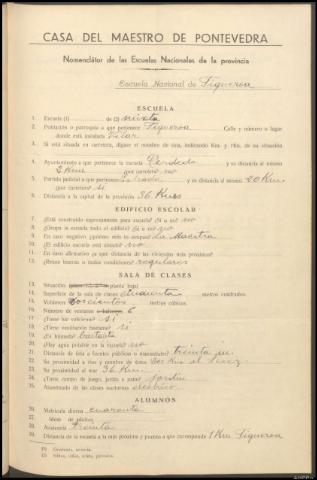 CASA DEL MAESTRO DE PONTEVEDRA
Nomenclátor de las Escuelas Nacionales de la provincia
Escuela Nacional de Figueroa
ESCUELA
1. Escuela (1) de (2) mixta
2. Población o parroquia a que pertenece Figueroa Calle y número o lugar
donde está instalada Vilar
3. Si está situada en carretera, dígase el nombre de ésta, indicando Km. y Hm. de su situación
4. Ayuntamiento a que pertenece la escuela Cerdedo y su distancia al mismo
2 Kms por carretera no
5. Partido judicial a que pertenece Estrada y su distancia al mismo 20 Km
por carretera si
6. Distancia a la capital de la provincia 36 Kms
EDIFICIO ESCOLAR
7. ¿Está construido expresamente para escuela? Sí o no no
8. ¿Ocupa la escuela todo el edificio? Sí o no no
9. En caso negativo ¿quiénes más lo ocupan? La Maestra
10. ¿El edificio escuela está aislado? no
11. En caso afirmativo ¿a qué distancia de las viviendas más próximas?
12. ¿Reune buenas o malas condiciones? regulares
SALA DE CLASES
13. Situación planta baja
14. Superficie de la sala de clases Cuarenta metros cuadrados.
15. Volúmen Doscientos metros cúbicos.
16. Número de ventanas 6
17. ¿Tiene luz cenital? si
18. ¿Tiene ventilación bastante? si
19. ¿Es húmeda? bastante
20. ¿Hay agua potable en la escuela? no
21. Distancia de ésta a fuentes públicas o manantiales? treinta m.
22. Su proximidad a ríos y nombre de éstos
23. Su proximidad al mar 36 Km.
24. ¿Tiene campo de juego, jardín o patio? jardín
25. Alumbrado de las clases nocturnas eléctrico
ALUMNOS
26. Matrícula diurna cuarenta
27. Idem de adultos
28. Asistencia Treinta
29. Distancia de la escuela a la más próxima y pueblo a que corresponde 1 Km Figueroa
(1) Graduada, unitaria.
(2) Niños, niñas, mixta, párvulos.